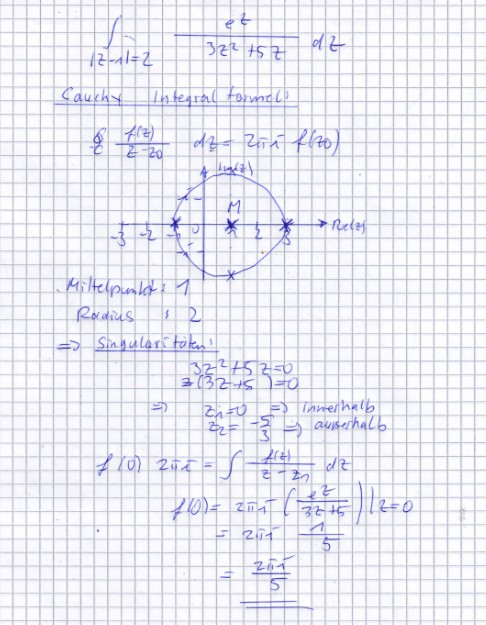 ∫ e^z / (3z² + 5z) dz
|z-1|=2
Cauchy Integralformel:
∮_C f(z) / (z-z0) dz = 2πi f(z0)
Im(z)
M
-3 -2 -1 0 1 2 3 Re(z)
Mittelpunkt: 1
Radius : 2
=> Singularitäten:
3z² + 5z = 0
z(3z+5) = 0
=> z1 = 0 => innerhalb
z2 = -5/3 => ausserhalb
f(0) 2πi = ∫ f(z) / (z-z1) dz
f(0) = 2πi (e^z / (3z+5)) | z=0
= 2πi 1/5
= 2πi/5